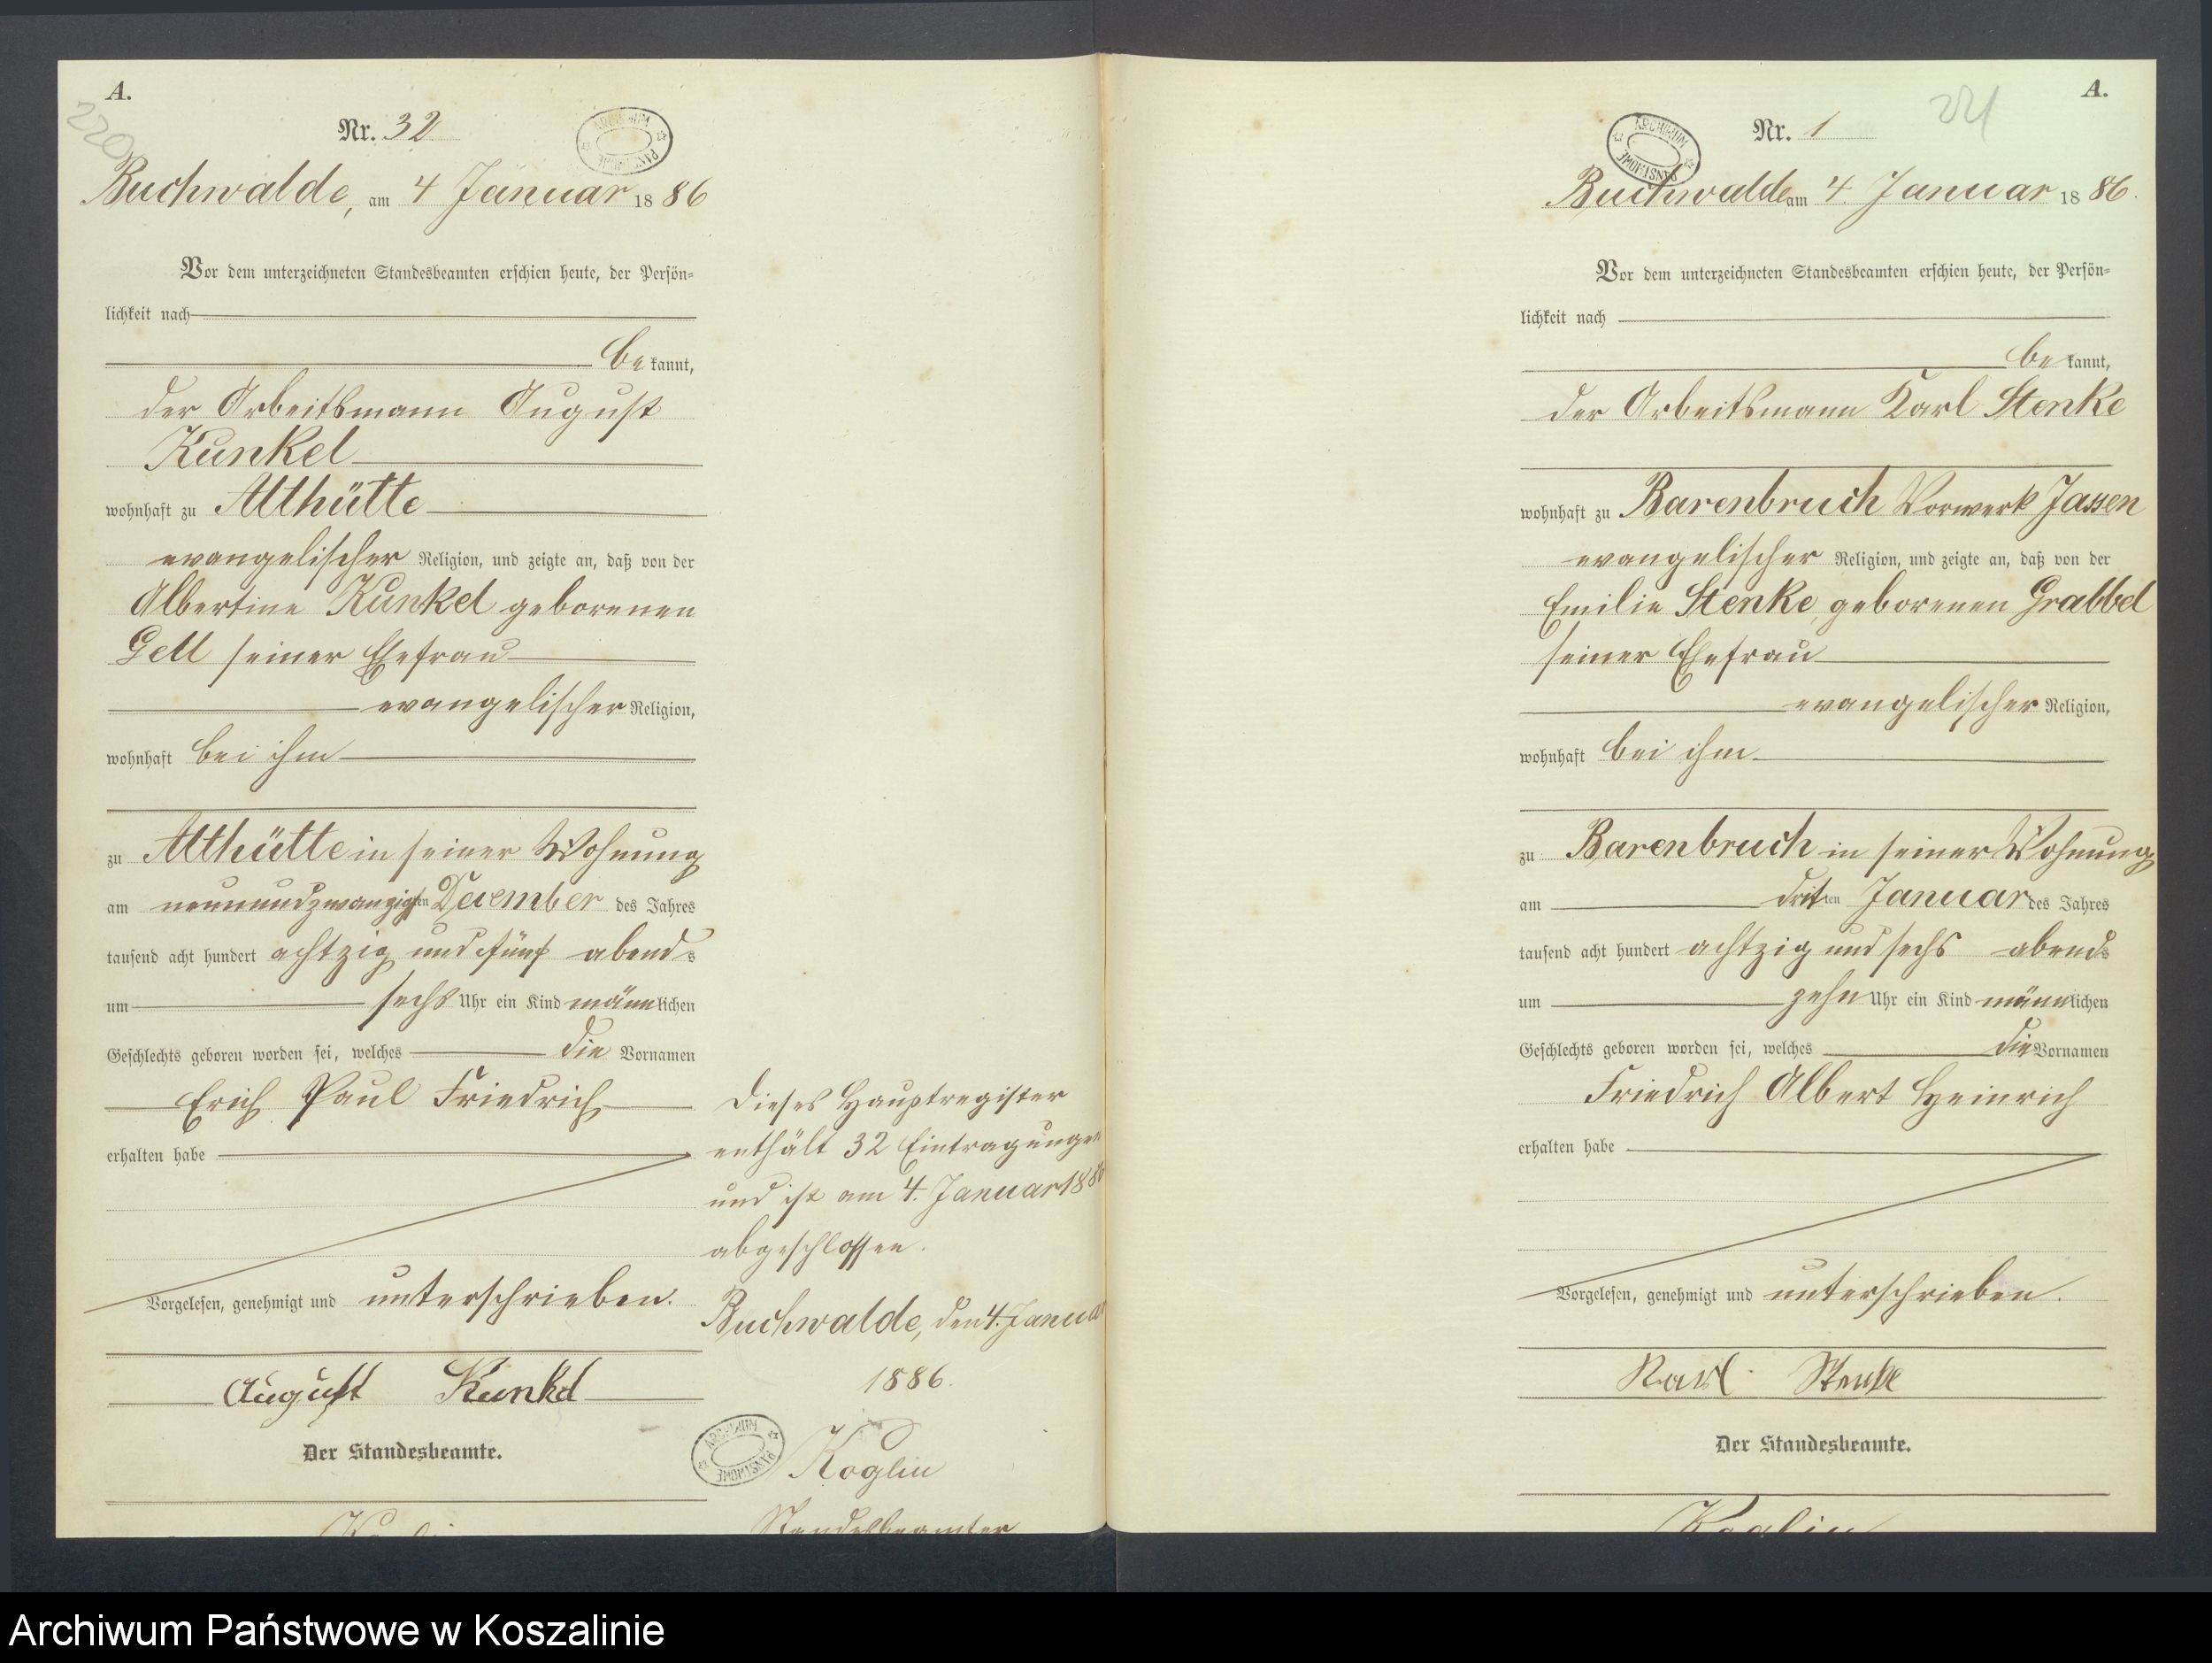 A.
220
Nr. 32
ARCHIWUM PAŃSTWOWE
Buchwalde, am 4 Januar 1886
Vor dem unterzeichneten Standesbeamten erschien heute, der Persön-
lichkeit nach
bekannt,
der Arbeitsmann August
Kunkel
wohnhaft zu Althütte
evangelischer Religion, und zeigte an, daß von der
Albertine Kunkel geborenen
Gell seiner Ehefrau
evangelischer Religion,
wohnhaft bei ihm
zu Althütte in seiner Wohnung
am neunundzwanzigsten December des Jahres
tausend acht hundert achtzig und fünf abends
um sechs Uhr ein Kind männlichen
Geschlechts geboren worden sei, welches die Vornamen
Erich Paul Friedrich
erhalten habe
Vorgelesen, genehmigt und unterschrieben.
August Kunkel
Der Standesbeamte.
Dieses Hauptregister
enthält 32 Eintragungen
und ist am 4. Januar 1886
abgeschlossen.
Buchwalde, den 4. Januar
1886.
ARCHIWUM PAŃSTWOWE
Koglin
Standesbeamter
A.
221
Nr. 1
ARCHIWUM PAŃSTWOWE
Buchwalde am 4. Januar 1886.
Vor dem unterzeichneten Standesbeamten erschien heute, der Persön-
lichkeit nach
bekannt,
der Arbeitsmann Karl Stenke
wohnhaft zu Barenbruch Vorwerk Jassen
evangelischer Religion, und zeigte an, daß von der
Emilie Stenke, geborenen Grabbel
seiner Ehefrau
evangelischer Religion,
wohnhaft bei ihm
zu Barenbruch in seiner Wohnung
am dritten Januar des Jahres
tausend acht hundert achtzig und sechs abends
um zehn Uhr ein Kind männlichen
Geschlechts geboren worden sei, welches die Vornamen
Friedrich Albert Heinrich
erhalten habe
Vorgelesen, genehmigt und unterschrieben.
Karl Stenke
Der Standesbeamte.
Koglin
Archiwum Państwowe w Koszalinie